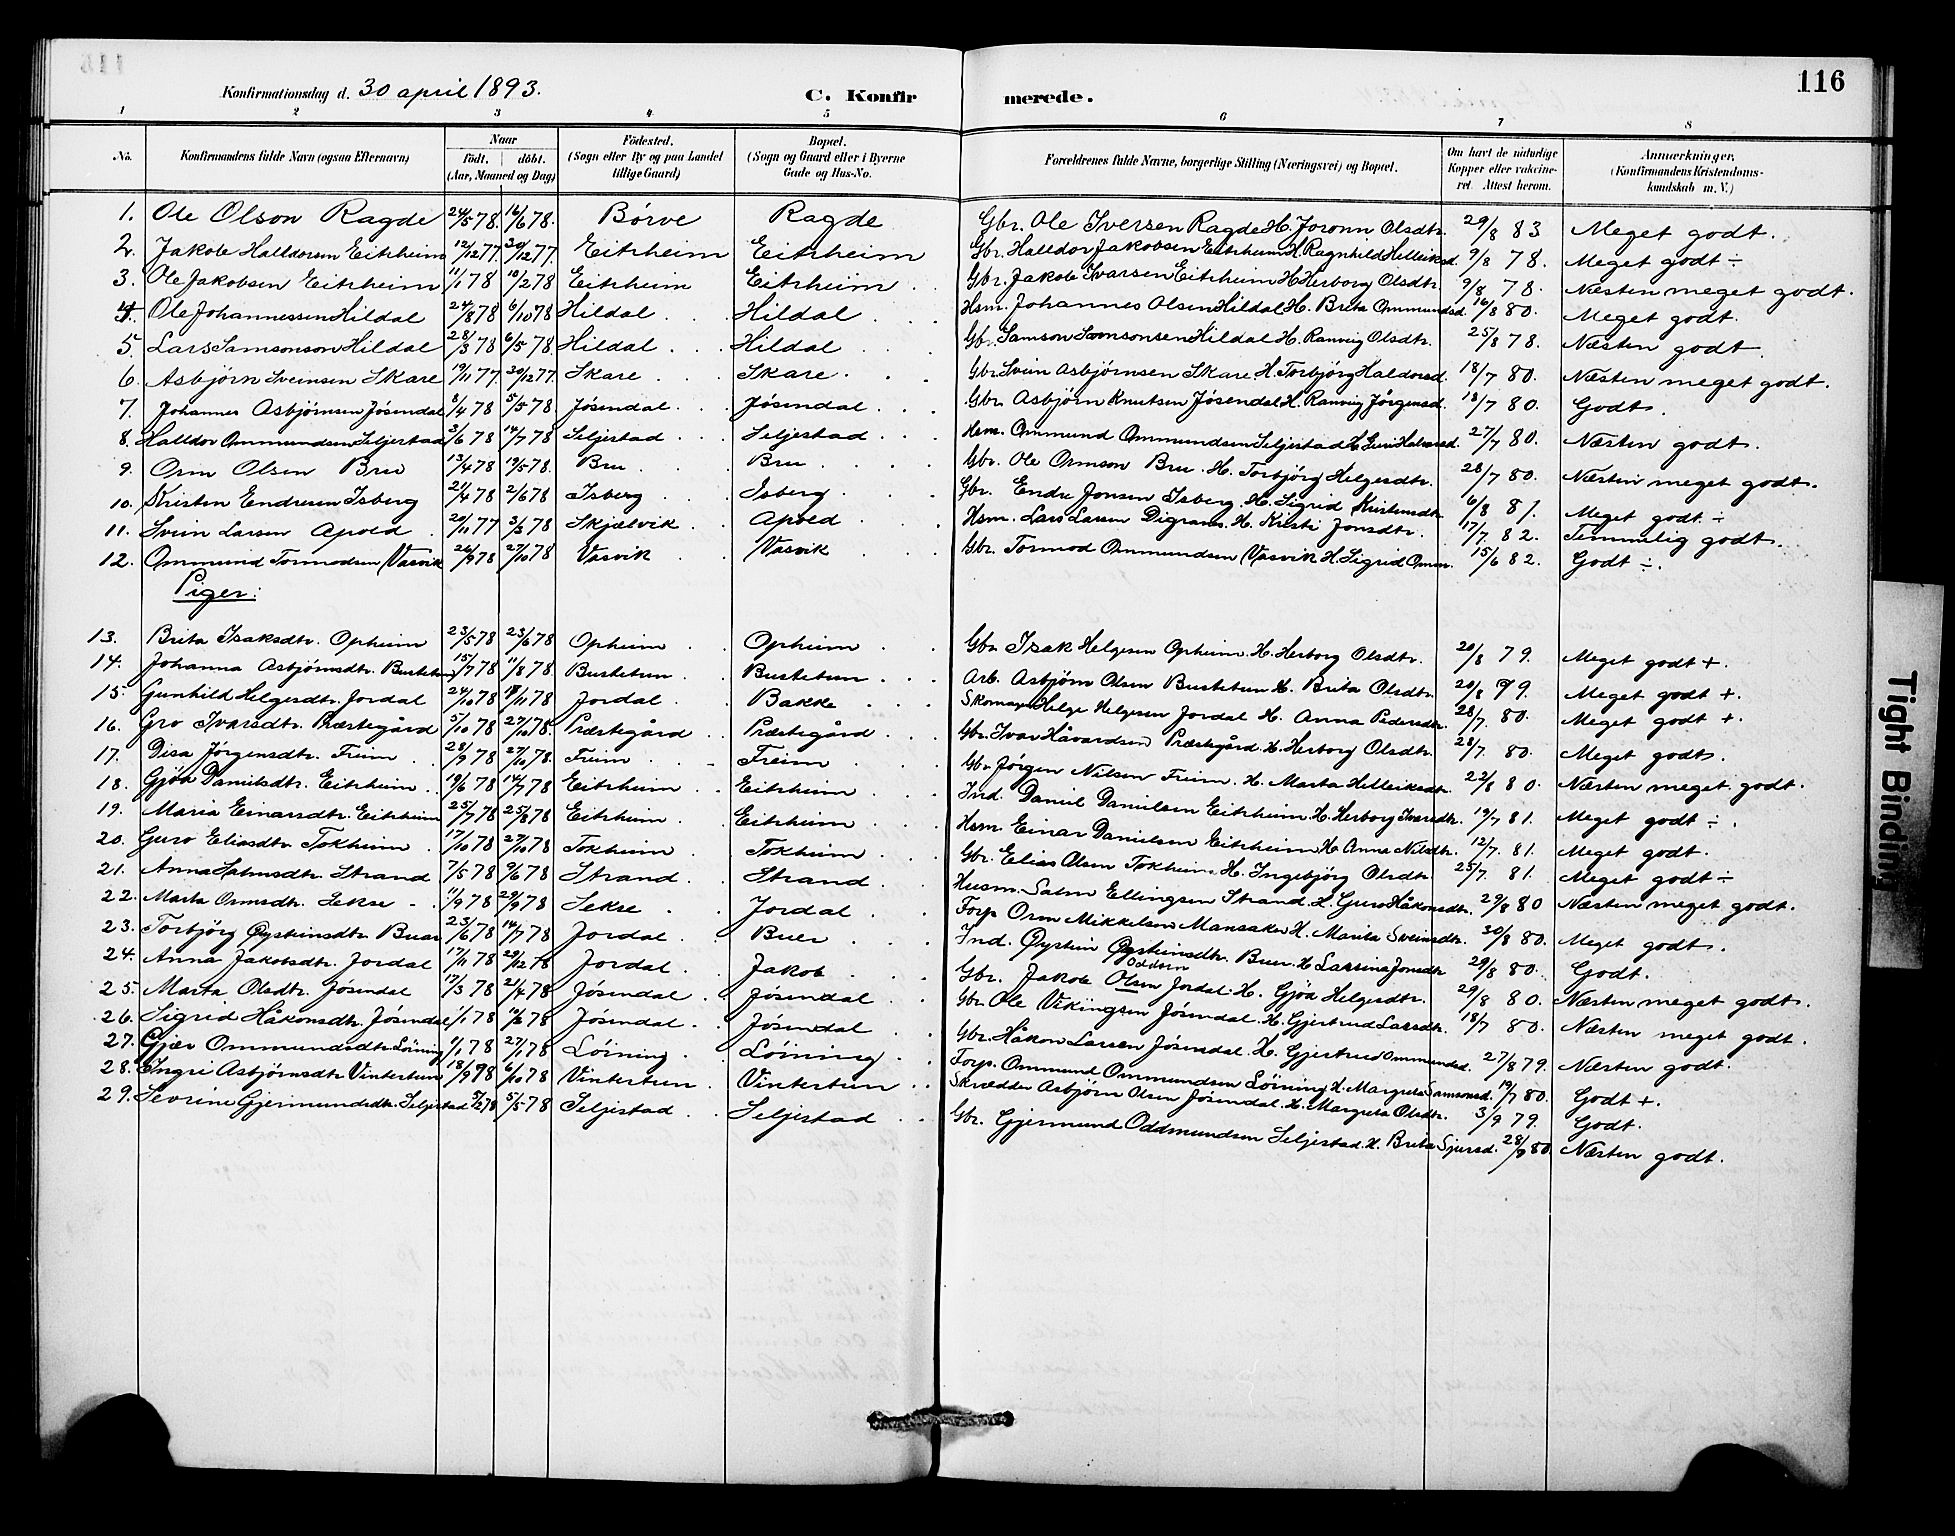 116
Konfirmationsdag d. 30 april 1893.
C. Konfirmerede.
1 2 3 4 5 6 7 8
No. | Konfirmandens fulde Navn (ogsaa Efternavn) | Naar födt. | döbt. (Aar, Maaned og Dag) | Födested. (Sogn eller By og paa Landet tillige Gaard) | Bopæl. (Sogn og Gaard eller i Byerne Gade og Hus-No. | Forældrenes fulde Navne, borgerlige Stilling (Næringsvei) og Bopæl. | Om havt de naturlige Kopper eller vakcineret. Attest herom. | Anmærkninger, (Konfirmandens Kristendomskundskab m. V.)
1. Ole Olson Ragde 24/5 78. 16/6 78. Börve Ragde Gbr. Ole Iversen Ragde H. Joronn Olsdtr. 29/8 83 Meget godt.
2. Jakob Halldorsen Eitrheim 12/12 77. 30/12 77. Eitrheim Eitrheim Gbr. Halldor Jakobsen Eitrheim H. Ragnhild Helleiksd. 9/8 78. Meget godt ÷
3. Ole Jakobsen Eitrheim 11/1 78 10/2 78 Eitrheim Eitrheim Gbr. Jakob Ivarsen Eitrheim H. Herborg Olsdtr. 9/8 78. Næsten meget godt.
4. Ole Johannessen Hildal 24/8 78 6/10 78 Hildal Hildal Hsm. Johannes Olsen Hildal H. Brita Ommundsd. 16/8 80. Meget godt.
5. Lars Samsonson Hildal 28/3 78 6/5 78. Hildal Hildal Gbr. Samson Samsonsen Hildal H. Ranveig Olsdtr. 25/8 78. Næsten godt
6. Asbjörn Sveinsen Skare 19/11 77. 30/12 77. Skare Skare Gbr. Svein Asbjørnsen Skare. H. Torbjörg Haldorsd. 18/7 80. Næsten meget godt.
7. Johannes Asbjörnsen Jösendal 8/4 78 5/5 78. Jösendal Jösendal Gbr. Asbjörn Knutsen Jösendal H. Ranveig Jörgensd. 18/7 80. Godt.
8. Halldor Ommundsen Seljestad 2/6 78 14/7 78 Seljestad Seljestad Hsm. Ommund Ommundsen Seljestad H. Guri Halvorsd. 27/7 80. Næsten godt.
9. Orm Olsen Bru 13/4 78 19/5 78. Bru Bru Gbr. Ole Ormson Bru. H. Torbjörg Helgesdtr. 28/7 80. Næsten meget godt.
10. Kristen Endresen Isberg 21/4 78 2/6 78 Isberg Isberg Gbr. Endre Jonsen Isberg. H. Sigrid Kristensdtr. 6/8 81. Meget godt ÷
11. Svein Larsen Apold 20/11 77 3/3 78 Skjælvik Apold Hsm. Lars Larsen Digranes. H. Kristi Jonsdtr. 17/7 82. Temmelig godt.
12. Ommund Tormodsen Vasvik 26/9 78 27/10 78 Vasvik Vasvik Gbr. Tormod Ommundsen Vasvik H. Sigrid Omm. 15/6 82. Godt ÷.
Piger:
13. Brita Isaksdtr. Opheim 23/5 78 23/6 78 Opheim Opheim Gbr. Isak Helgesen Opheim. H. Herborg Olsdtr. 20/8 79. Meget godt +.
14. Johanna Asbjörnsdtr. Bustetun 15/7 78 11/8 78 Bustetun Bustetun Arb. Asbjörn Olsen Bustetun H. Brita Olsdtr. 20/8 79. Meget godt +.
15. Gunhild Helgesdtr. Jordal 24/10 78 17/11 78 Jordal Bakke Skomager Helge Helgesen Jordal H. Anna Pedersdtr. 28/7 80. Meget godt +.
16. Gro Ivarsdtr. Præstegård 5/10 78 27/10 78. Præstegård Præstegård Gbr. Ivar Håvardsen Præstegård H. Herborg Olsdtr. 28/7 80. Meget godt.
17. Disa Jörgensdtr. Freim 28/9 78 27/10 78. Freim Freim Gbr. Jörgen Nilsen Freim. H. Marta Helleiksdtr. 22/8 80. Næsten meget godt.
18. Gjöa Danielsdtr. Eitrheim 19/6 78 14/7 78 Eitrheim Eitrheim Ind. Daniel Danielsen Eitrheim H. Herborg Ivarsdtr. 19/7 81. Meget godt ÷.
19. Maria Einarsdtr. Eitrheim 25/7 78 25/8 78 Eitrheim Eitrheim Hsm Einar Danielsen Eitrheim H. Anna Nilsdtr. 12/7. 81. Meget godt.
20. Guro Eliasdtr. Tokheim 17/10 78 27/10 78 Tokheim Tokheim Gbr. Elias Olsen Tokheim. H. Ingebjörg Olsdtr. 25/7. 81. Meget godt ÷
21. Anna Salmsdtr. Strand 7/5 78 9/6 78 Strand Strand Husm. Salm Ellingsen Strand. H. Guro Håkonsdtr. 29/8 80 Næsten meget godt.
22. Marta Ormsdtr. Sekse 11/9 78 29/9 78 Sekse Jordal Forp. Orm Mikkelsen Mansaker H. Marita Sveinsdtr. 30/8 80. Meget godt.
23. Torbjörg Öysteinsdtr. Buar 23/6 78 14/7 78 Jordal Buer Ind. Øystein Øysteinsdtr. Buer. H. Larsina Jonsdtr 29/8 80. Godt.
24. Anna Jakobsdtr. Jordal 17/11 78 29/12 78 Jordal Jakob Gbr. Jakob Olsen Oddsen Jordal. H. Gjöa Helgesdtr. 29/8 80. Næsten meget godt.
25. Marta Olsdtr. Jösendal 17/3 78 21/4 78 Jösendal Jösendal Gbr. Ole Vikingsen Jösendal. H. Gjertrud Larsdtr. 18/7 80. Næsten meget godt.
26. Sigrid Håkonsdtr. Jösendal 1/1 78 10/3 78 Jösendal Jösendal Gbr. Håkon Larsen Jösendal. H. Gjertrud Ommundsd. 27/8 79. Næsten godt.
27. Gjær Ommundsdtr. Löining 9/1 78 27/1 78 Löining Löining Forp. Ommund Ommundsen Löining H. Margreta Samsonsd. 19/7 80. Godt +.
28. Ingri Asbjörnsdtr. Vintertun 18/9 78 6/10 78 Vintertun Vintertun Skrædder Asbjörn Olsen Jösendal. H. Margreta Olsdtr. 3/9 79. Godt.
29. Sevrine Gjermundsdtr. Seljestad 5/2 78 5/5 78 Seljestad Seljestad Gbr. Gjermund Oddmundsen Seljestad. H. Brita Sjursd. 28/9 80. Næsten godt.
Tight Binding